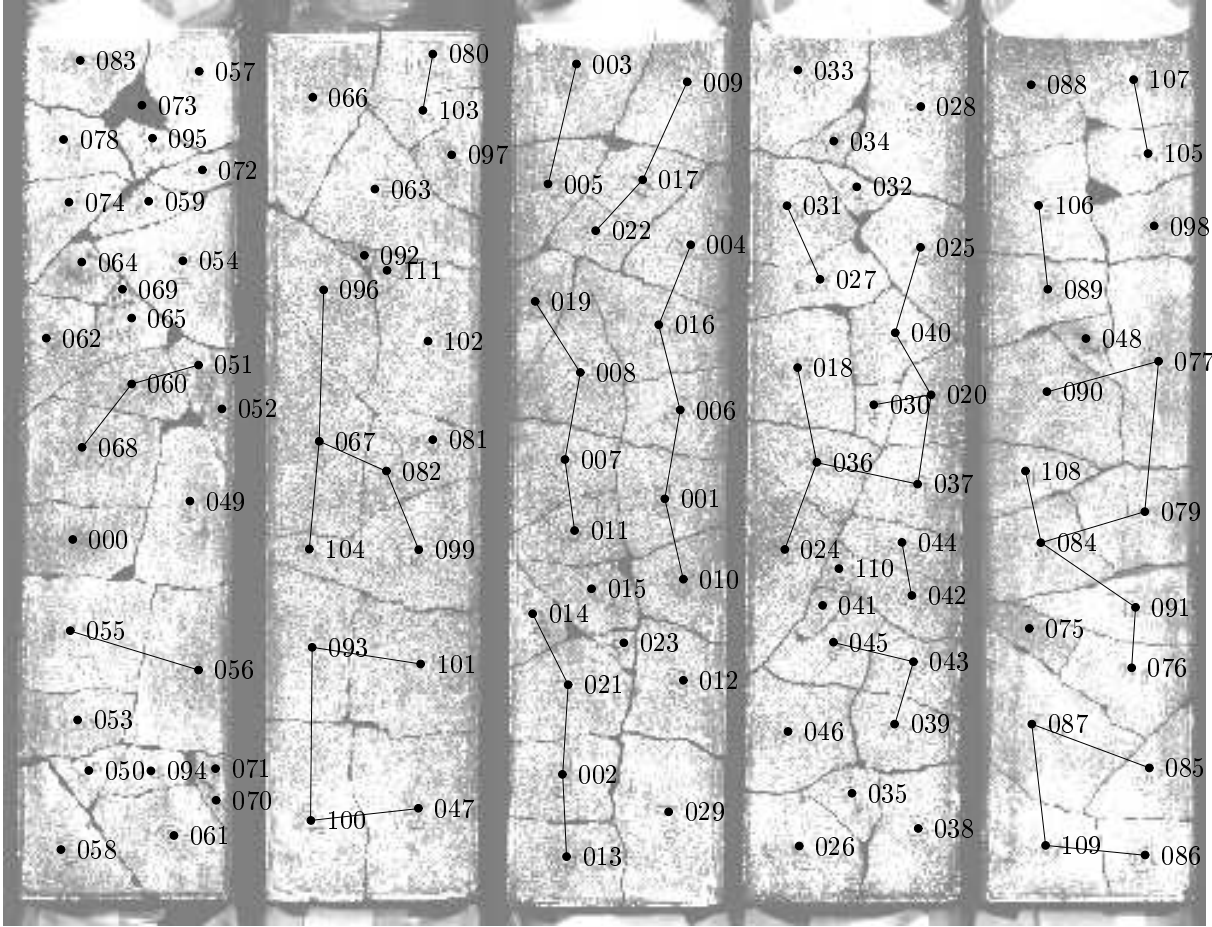 083
057
073
078
095
072
074
059
064
054
069
065
062
051
060
052
068
049
000
055
056
053
050
094
071
070
061
058
080
066
103
097
063
092
111
096
102
067
081
082
104
099
093
101
100
047
003
009
005
017
022
004
019
016
008
006
007
001
011
015
010
014
023
021
012
002
029
013
033
028
034
032
031
025
027
040
018
030
020
036
037
024
044
110
042
041
045
043
046
039
035
038
026
088
107
105
106
098
089
048
077
090
108
079
084
091
075
076
087
085
109
086